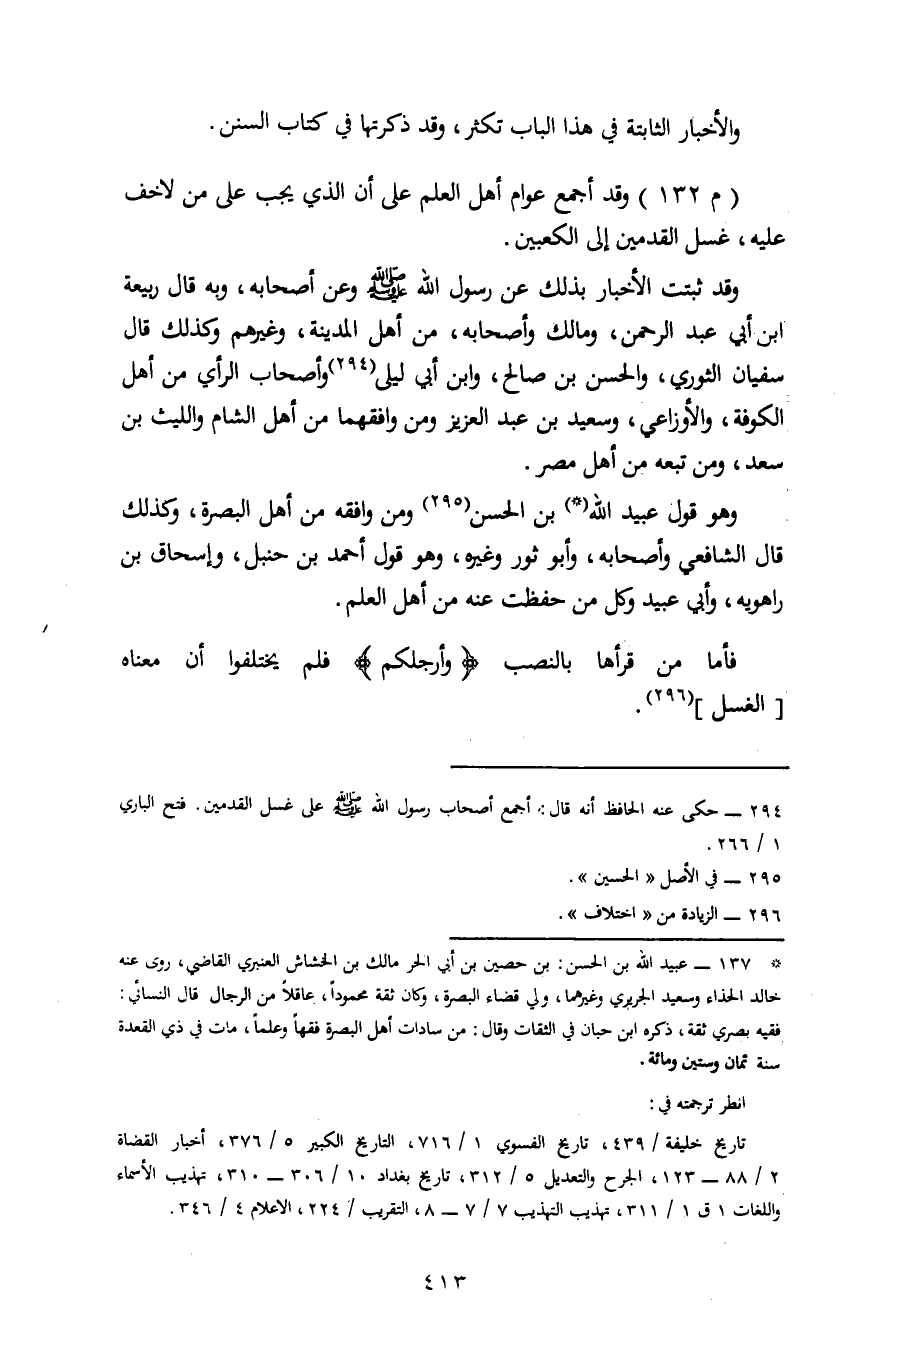 والأخبار الثابتة في هذا الباب تكثر، وقد ذكرتها في كتاب السنن.
( م ١٣٢ ) وقد أجمع عوام أهل العلم على أن الذي يجب على من لاخف
عليه، غسل القدمين إلى الكعبين.
وقد ثبتت الأخبار بذلك عن رسول الله ﷺ وعن أصحابه، وبه قال ربيعة
ابن أبي عبد الرحمن، ومالك وأصحابه، من أهل المدينة، وغيرهم وكذلك قال
سفيان الثوري، والحسن بن صالح، وابن أبي ليلى(٢٩٤)وأصحاب الرأي من أهل
الكوفة، والأوزاعي، وسعيد بن عبد العزيز ومن وافقهما من أهل الشام والليث بن
سعد، ومن تبعه من أهل مصر.
وهو قول عبيد الله(*) بن الحسن(٢٩٥) ومن وافقه من أهل البصرة، وكذلك
قال الشافعي وأصحابه، وأبو ثور وغيره، وهو قول أحمد بن حنبل، وإسحاق بن
راهويه، وأبي عبيد وكل من حفظت عنه من أهل العلم.
فأما من قرأها بالنصب ﴿ وأرجلكم ﴾ فلم يختلفوا أن معناه
[ الغسل ](٢٩٦).
٢٩٤ ــ حكى عنه الحافظ أنه قال: أجمع أصحاب رسول الله ﷺ على غسل القدمين. فتح الباري
١ / ٢٦٦.
٢٩٥ ــ في الأصل « الحسين ».
٢٩٦ ــ الزيادة من « اختلاف ».
* ١٣٧ ــ عبيد الله بن الحسن: بن حصين بن أبي الحر مالك بن الخشاش العنبري القاضي، روى عنه
خالد الحذاء وسعيد الجريري وغيرهما، ولي قضاء البصرة، وكان ثقة محموداً، عاقلاً من الرجال قال النسائي:
فقيه بصري ثقة، ذكره ابن حبان في الثقات وقال: من سادات أهل البصرة فقهاً وعلماً، مات في ذي القعدة
سنة ثمان وستين ومائة.
انظر ترجمته في:
تاريخ خليفة / ٤٣٩، تاريخ الفسوي ١ / ٧١٦، التاريخ الكبير ٥ / ٣٧٦، أخبار القضاة
٢ / ٨٨ ــ ١٢٣، الجرح والتعديل ٥ / ٣١٢، تاريخ بغداد ١٠ / ٣٠٦ ــ ٣١٠، تهذيب الأسماء
واللغات ١ ق ١ / ٣١١، تهذيب التهذيب ٧ / ٧ ــ ٨، التقريب / ٢٢٤، الاعلام ٤ / ٣٤٦.
٤١٣